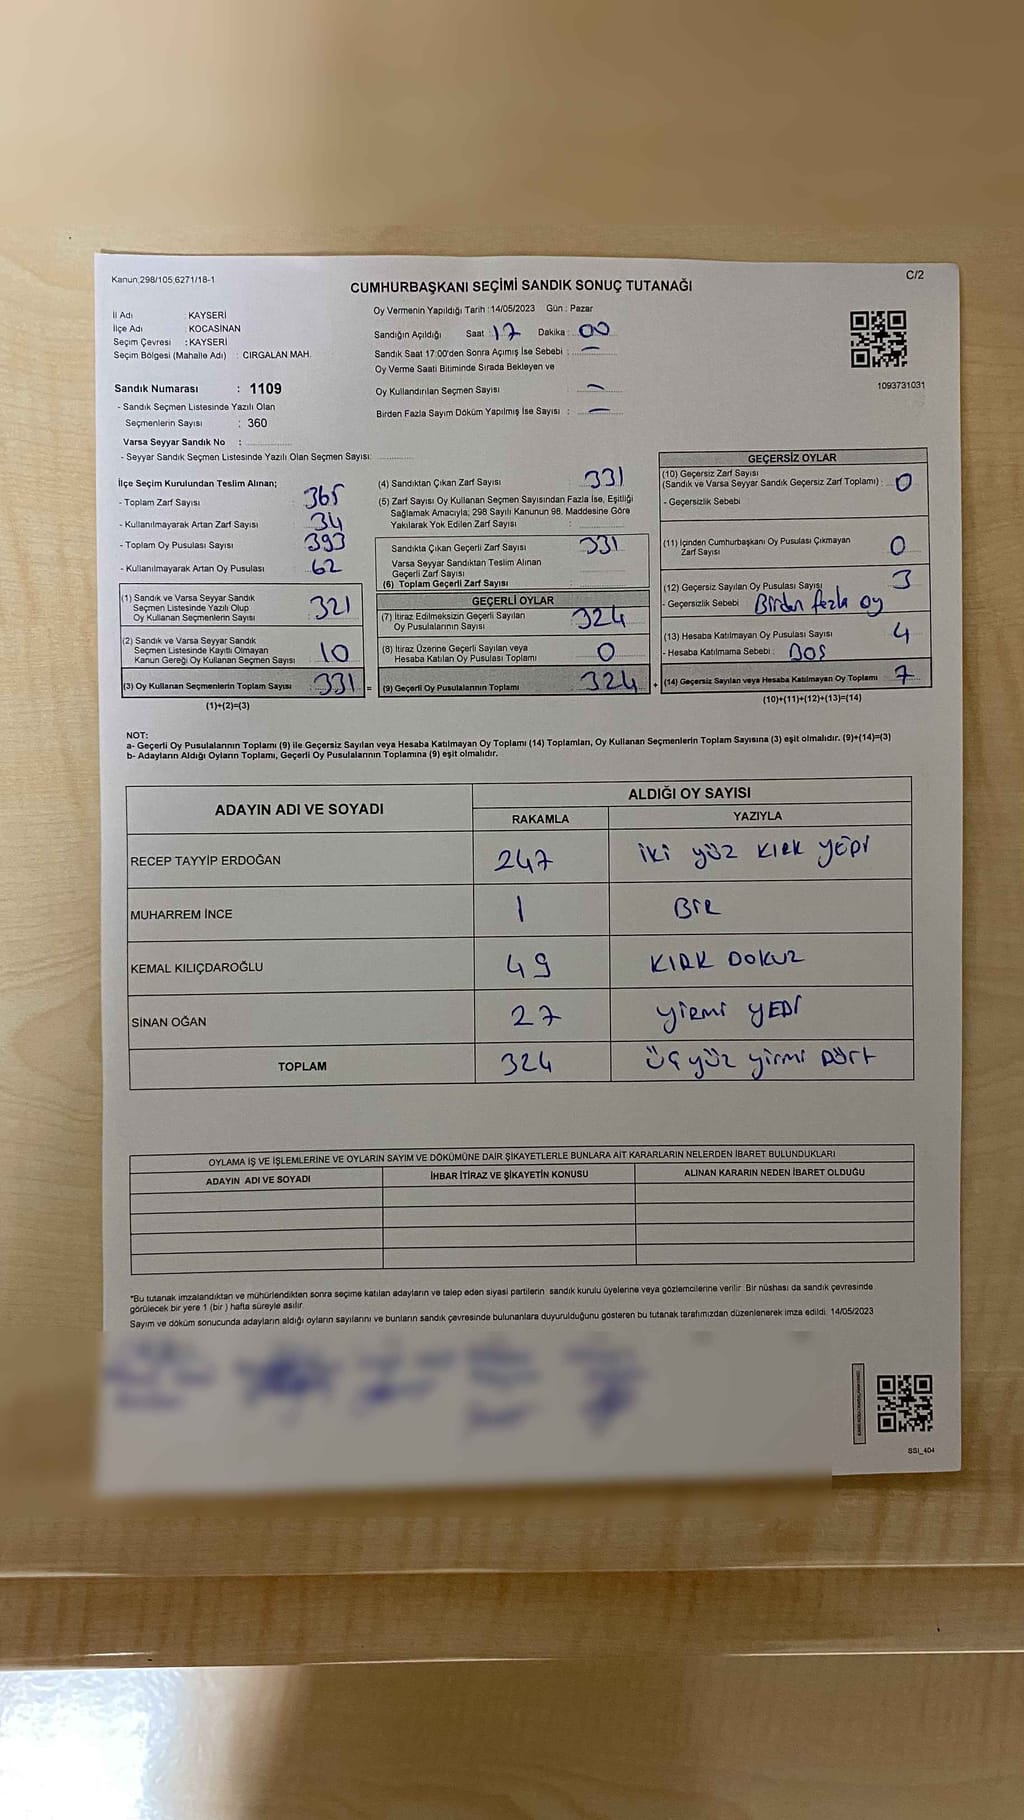 Kanun;298/105,6271/18-1
C/2
CUMHURBAŞKANI SEÇİMİ SANDIK SONUÇ TUTANAĞI
İl Adı : KAYSERİ
İlçe Adı : KOCASİNAN
Seçim Çevresi : KAYSERİ
Seçim Bölgesi (Mahalle Adı) : CIRGALAN MAH.
Sandık Numarası : 1109
- Sandık Seçmen Listesinde Yazılı Olan
Seçmenlerin Sayısı : 360
Varsa Seyyar Sandık No :
- Seyyar Sandık Seçmen Listesinde Yazılı Olan Seçmen Sayısı:
Oy Vermenin Yapıldığı Tarih :14/05/2023 Gün : Pazar
Sandığın Açıldığı Saat : 17 Dakika : 00
Sandık Saat 17:00'den Sonra Açımış İse Sebebi : –
Oy Verme Saati Bitiminde Sırada Bekleyen ve
Oy Kullandırılan Seçmen Sayısı : –
Birden Fazla Sayım Döküm Yapılmış İse Sayısı : –
1093731031
İlçe Seçim Kurulundan Teslim Alınan;
- Toplam Zarf Sayısı : 365
- Kullanılmayarak Artan Zarf Sayısı : 34
- Toplam Oy Pusulası Sayısı : 393
- Kullanılmayarak Artan Oy Pusulası : 62
(1) Sandık ve Varsa Seyyar Sandık
Seçmen Listesinde Yazılı Olup
Oy Kullanan Seçmenlerin Sayısı 321
(2) Sandık ve Varsa Seyyar Sandık
Seçmen Listesinde Kayıtlı Olmayan
Kanun Gereği Oy Kullanan Seçmen Sayısı 10
(3) Oy Kullanan Seçmenlerin Toplam Sayısı 331 =
(1)+(2)=(3)
(4) Sandıktan Çıkan Zarf Sayısı : 331
(5) Zarf Sayısı Oy Kullanan Seçmen Sayısından Fazla İse, Eşitliği
Sağlamak Amacıyla; 298 Sayılı Kanunun 98. Maddesine Göre
Yakılarak Yok Edilen Zarf Sayısı :
Sandıkta Çıkan Geçerli Zarf Sayısı 331
Varsa Seyyar Sandıktan Teslim Alınan
Geçerli Zarf Sayısı
(6) Toplam Geçerli Zarf Sayısı
GEÇERLİ OYLAR
(7) İtiraz Edilmeksizin Geçerli Sayılan
Oy Pusulalarının Sayısı 324
(8) İtiraz Üzerine Geçerli Sayılan veya
Hesaba Katılan Oy Pusulası Toplamı 0
(9) Geçerli Oy Pusulalarının Toplamı 324 +
GEÇERSİZ OYLAR
(10) Geçersiz Zarf Sayısı
(Sandık ve Varsa Seyyar Sandık Geçersiz Zarf Toplamı) : 0
- Geçersizlik Sebebi
(11) İçinden Cumhurbaşkanı Oy Pusulası Çıkmayan
Zarf Sayısı 0
(12) Geçersiz Sayılan Oy Pusulası Sayısı 3
- Geçersizlik Sebebi Birden fazla oy
(13) Hesaba Katılmayan Oy Pusulası Sayısı 4
- Hesaba Katılmama Sebebi : BOŞ
(14) Geçersiz Sayılan veya Hesaba Katılmayan Oy Toplamı 7
(10)+(11)+(12)+(13)=(14)
NOT:
a- Geçerli Oy Pusulalarının Toplamı (9) ile Geçersiz Sayılan veya Hesaba Katılmayan Oy Toplamı (14) Toplamları, Oy Kullanan Seçmenlerin Toplam Sayısına (3) eşit olmalıdır. (9)+(14)=(3)
b- Adayların Aldığı Oyların Toplamı, Geçerli Oy Pusulalarının Toplamına (9) eşit olmalıdır.
ADAYIN ADI VE SOYADI
ALDIĞI OY SAYISI
RAKAMLA YAZIYLA
RECEP TAYYİP ERDOĞAN 247 iki yüz KIRK YEDİ
MUHARREM İNCE 1 BİR
KEMAL KILIÇDAROĞLU 49 KIRK DOKUZ
SİNAN OĞAN 27 yirmi YEDİ
TOPLAM 324 üç yüz yirmi DÖRT
OYLAMA İŞ VE İŞLEMLERİNE VE OYLARIN SAYIM VE DÖKÜMÜNE DAİR ŞİKAYETLERLE BUNLARA AİT KARARLARIN NELERDEN İBARET BULUNDUKLARI
ADAYIN ADI VE SOYADI İHBAR İTİRAZ VE ŞİKAYETİN KONUSU ALINAN KARARIN NEDEN İBARET OLDUĞU
*Bu tutanak imzalandıktan ve mühürlendikten sonra seçime katılan adayların ve talep eden siyasi partilerin sandık kurulu üyelerine veya gözlemcilerine verilir. Bir nüshası da sandık çevresinde
görülecek bir yere 1 (bir ) hafta süreyle asılır.
Sayım ve döküm sonucunda adayların aldığı oyların sayılarını ve bunların sandık çevresinde bulunanlara duyurulduğunu gösteren bu tutanak tarafımızdan düzenlenerek imza edildi. 14/05/2023
SSI_404